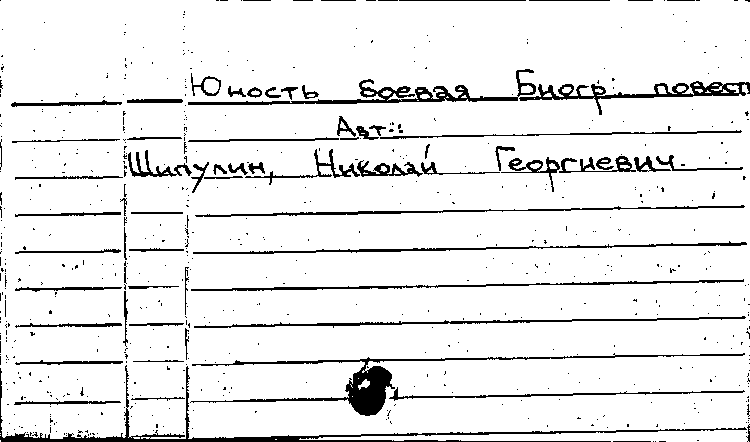 Юность боевая. Биогр. повест
Авт.:
Шипулин, Николай Георгиевич.